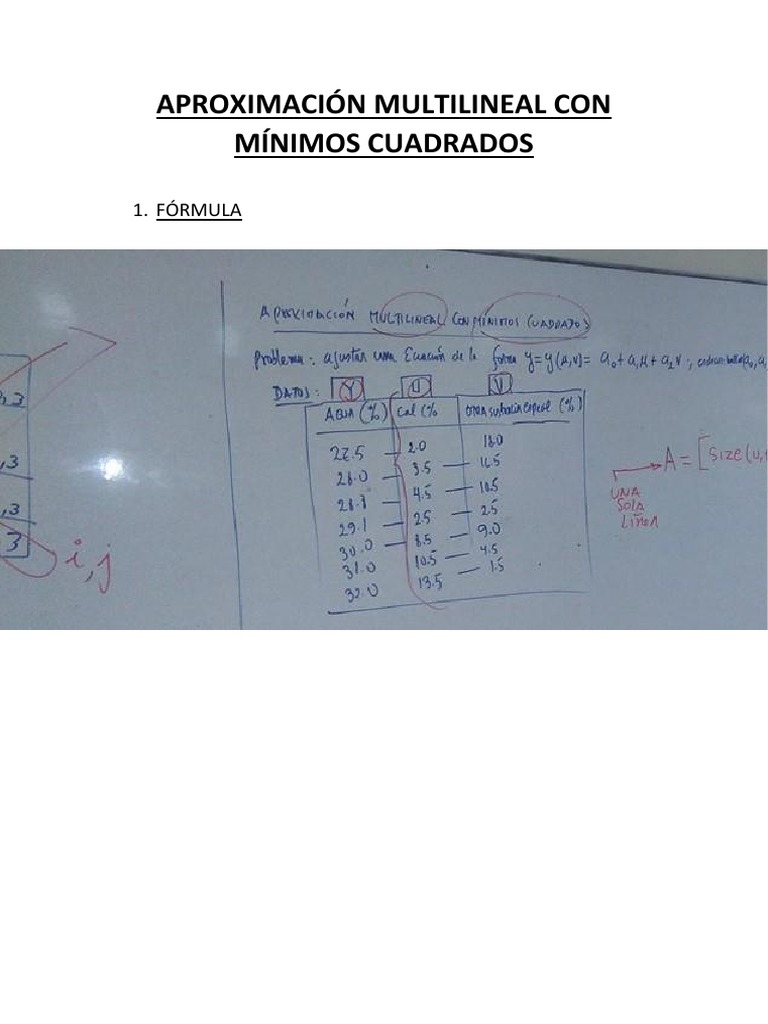 APROXIMACIÓN MULTILINEAL CON
MÍNIMOS CUADRADOS
1. FÓRMULA
APROXIMACIÓN MULTILINEAL CON MÍNIMOS CUADRADOS
Problema: ajustar una Ecuación de la forma y = y(u,v) = a0 + a1u + a2v
DATOS: Y U V
AGUA (%) Cal (% (%)
27.5 2.0 18.0
28.0 3.5 16.5
28.8 4.5 10.5
29.1 2.5 2.5
30.0 8.5 9.0
31.0 10.5 4.5
32.0 13.5 1.5
A = [size(u,
UNA
SOLA
LÍNEA
,3
,3
,3
3
i,j